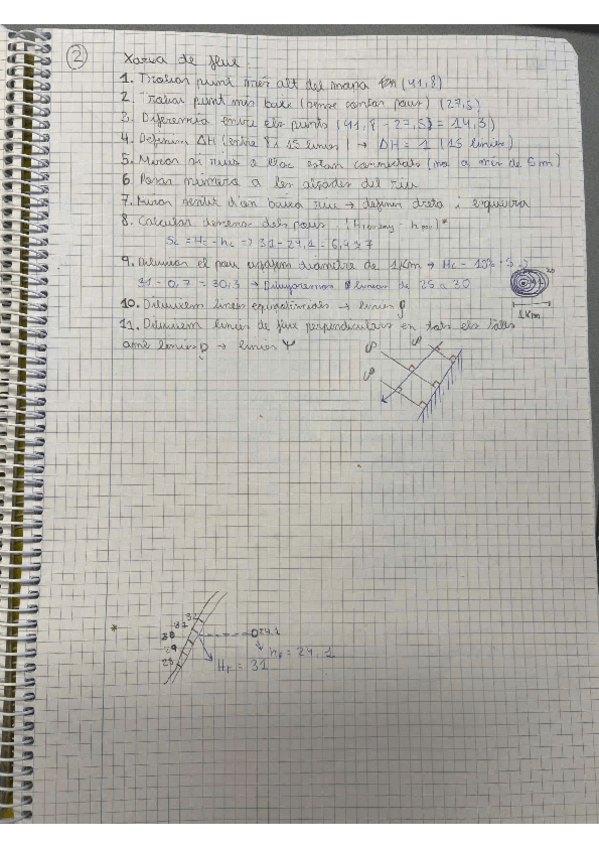 2
Xarxa de flux
1. Trobar punt més alt del mapa (41,8)
2. Trobar punt més baix (sense contar pous) (27,5)
3. Diferència entre els punts (41,8 - 27,5) = 14,3)
4. Definim ΔH (entre 8 i 15 línies) → ΔH = 1 (15 línies)
5. Mirar si rius o llac estan connectats (no a més de 5m)
6. Posar número a les alçades del riu
7. Mirar sentit d'on baixa riu → definir dreta i esquerra
8. Calcular descens dels pous
Sc = Hc - hc => 31 - 24,1 = 6,9 ≈ 7
9. Dibuixar el pou agafem diàmetre de 1Km → Hc - 10% · Sc
31 - 0,7 = 30,3 → Dibujaremos línies de 25 a 30
30
1Km
10. Dibuixem línies equipotencials → línies φ
11. Dibuixem línies de flux perpendiculars en tots els talls
amb línies φ → línies Ψ
φ φ
φ
*
32
31
30
29
28
24.1
hp = 24.1
Hr = 31